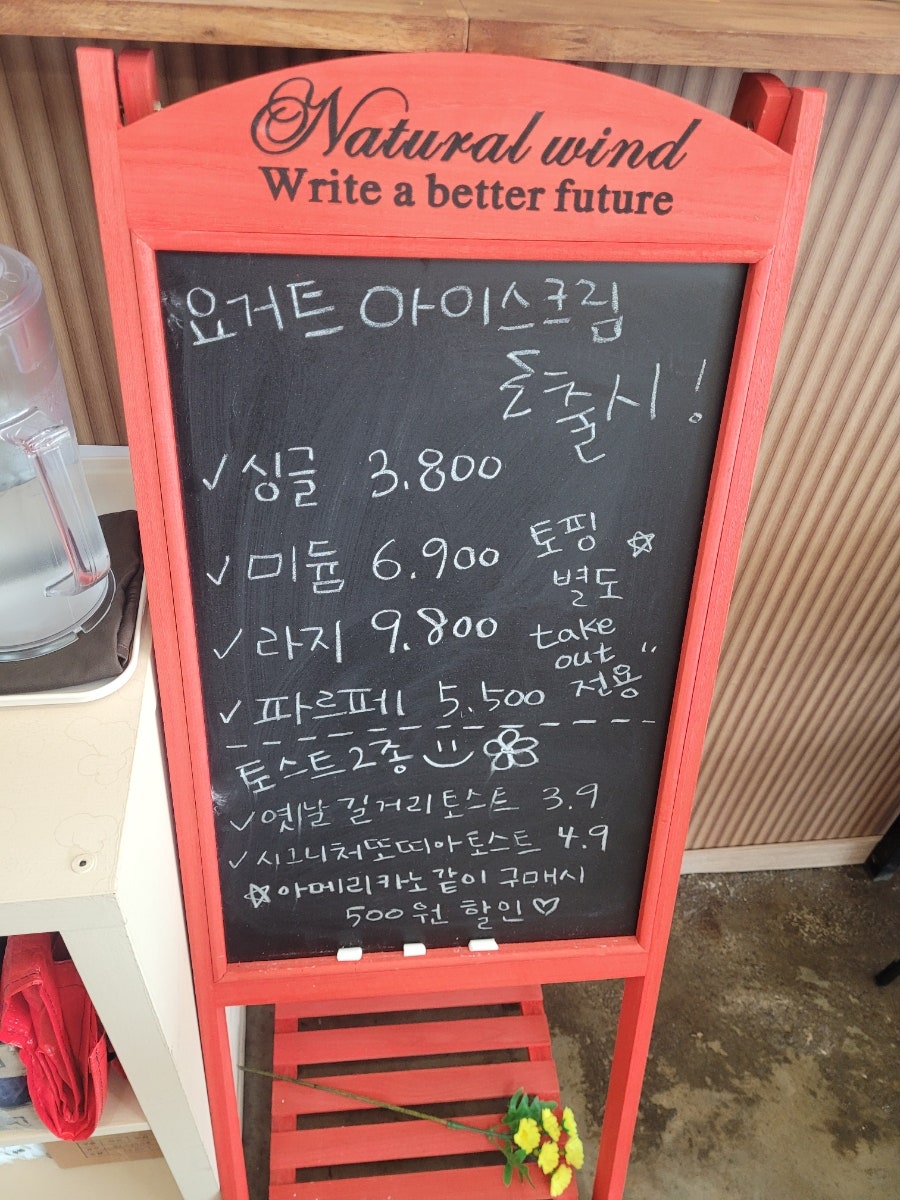 Natural wind
Write a better future
요거트 아이스크림
출시!
✓ 싱글 3.800
✓ 미듐 6.900
✓ 라지 9.800
✓ 파르페 5.500
토핑 ☆
별도
take
out
전용
토스트 2종
✓ 옛날 길거리 토스트 3.9
✓ 시그니처 또띠아 토스트 4.9
☆ 아메리카노 같이 구매시
500원 할인 ♡